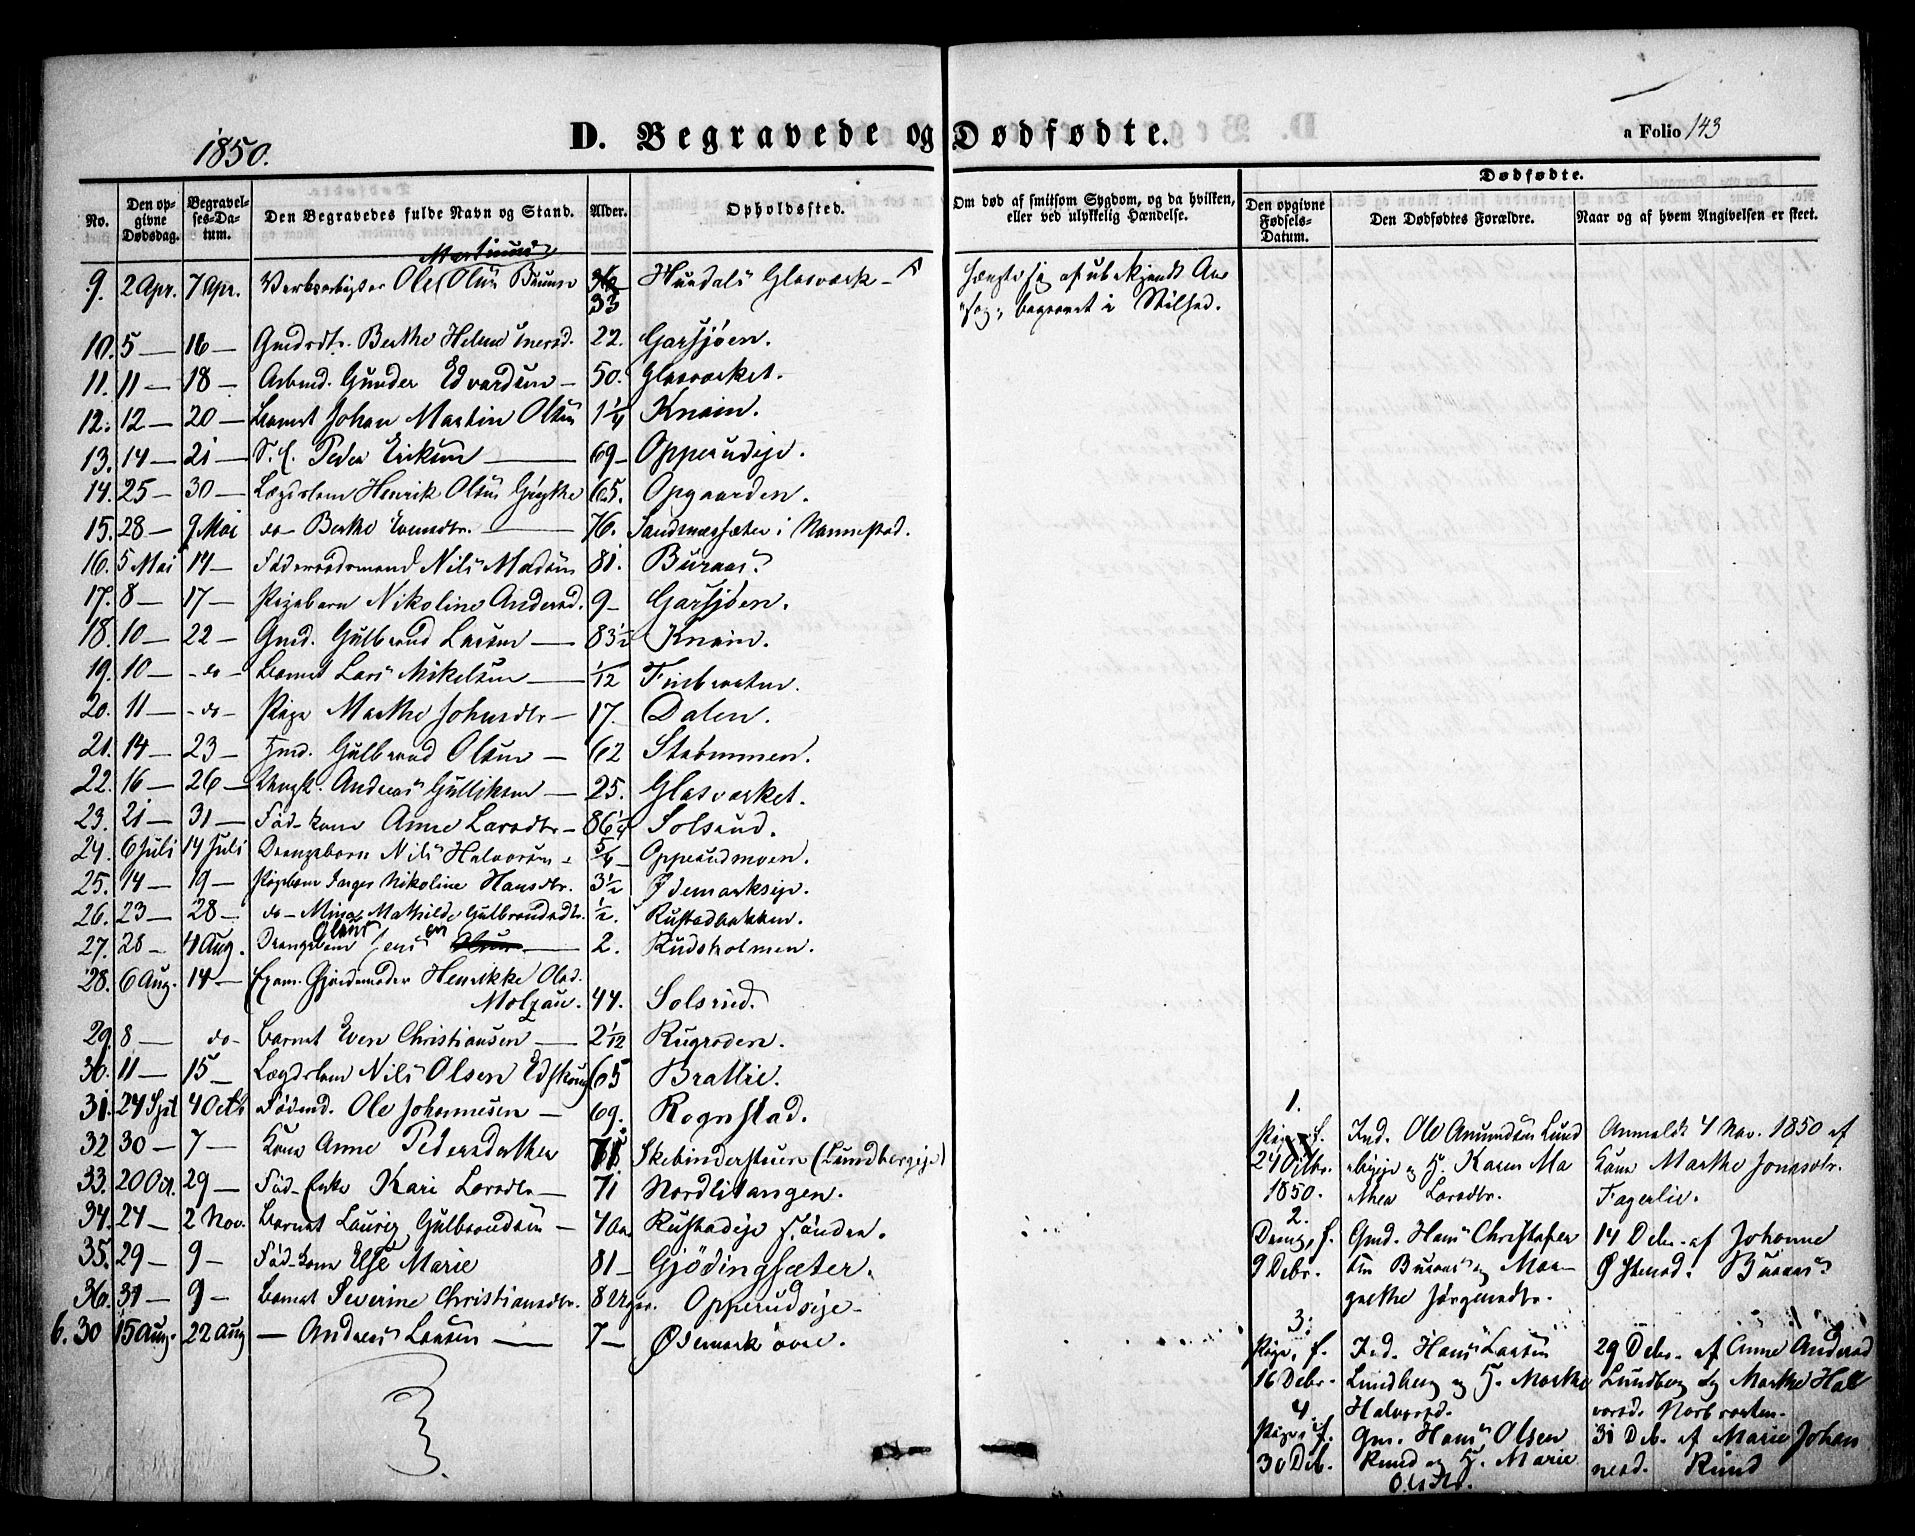 1850.
D. Begravede og Dødfødte.
a Folio 143
No.
Den opgivne Dødsdag.
Begravelses-Datum.
Den Begravedes fulde Navn og Stand.
Alder.
Opholdssted.
Om død af smitsom Sygdom, og da hvilken, eller ved ulykkelig Hændelse.
Dødfødte.
Den opgivne Fødsels-Datum.
Den Dødfødtes Forældre.
Naar og af hvem Angivelsen er skeet.
9. 2 Apr. 7 Apr. Ole Olsen 33 Hurdals Glasværk
10. 5 — 16 — Berthe Helene 22. Garsjøen.
11. 11 — 18 — Arbmd. Gunder Edvardsen — 50. Glasværket.
12. 12 — 20 — Barnet Johan Martin Olsen 1¼ Knain.
13. 14 — 21 — Peder Eriksen — 69 — Opperudeje.
14. 25 — 30 — Lægdslem Henrik Olsen 65. Opgaarden.
15. 28 — 9 Mai do — Berthe Evensdtr. — 76. i Nannestad.
16. 5 Mai 14 — Føderaadsmand Nils Madsen 81. Buraas.
17. 8 — 17 — Pigebarn Nikoline Andersd. 9 — Garsjøen.
18. 10 — 22 — Gmd. Gulbrand Larsen — 83½ Knain.
19. 10 — do — Barnet Lars Mikelsen — 1/12 Finbraaten.
20. 11 — do — Pige Marthe Johnsdtr — 17. Dalen.
21. 14 — 23 — Gulbrand Olsen — 62 Strømmen.
22. 16 — 26 — Ungk. Andreas Gulliksen — 25. Glasværket.
23. 21 — 31 — Fød-kone Anne Larsdtr — 86¼ Solsrud.
24. 6 Juli 14 Juli Drengebarn Nils Halvorsen — 5/6 — Opperudmoen.
25. 14 — 19 — Pigebarn Inger Nikoline Hansdtr. 3½ Ødemarkseje.
26. 23 — 28 — do — Mina Mathilde Gulbrandsdtr. ½. Rustadbakken.
27. 28 — 4 Aug. Drengebarn Jens — 2. Rudsholmen.
28. 6 Aug. 14 — Exam. Gjordemoder Henrikke Olsd.
Molzau. 44. Solsrud.
29. 8 — do — Barnet Even Christiansen — 2 1/12 Rugroden.
30. 11 — 15 — Lægdslem Nils Olsen 65 Brattlie.
31. 24 Spt 4 Octb Fødmd. Ole Johannesen — 69. Rognstad.
32 30 — 7 — Kone Anne Pedersdatter 71 Skebinderstuen (Lundbergeje)
33. 20 Oct. 29 — Fød-Enke Kari Larsdtr — 71 Nordlitangen.
34. 24 — 2 Nov. Barnet Lauriz Gulbrandsen — 4 Rustadeje
35. 29 — 9 — Fød-kone Else Marie 81 — Gjødingsæter.
36. 31 — 9 — Barnet Severine Christiansdtr. 8 Uger. Opperudseje —
6. 30 15 Aug. 22 Aug — Andreas Larsen — 7 — Ødemark øvre.
1.
Pige, f. Ole Amundsen Lund Anmeldt 4 Nov. 1850 af
24 Octbr. og H. Karen Ma Kone Marthe Jonsdtr.
1850. thea Larsdtr. Fagerlie.
2.
Dreng, f. Gmd. Hans Christofer 14 Debr. af Johanne
9 Debr. sen Buraas og Mar- Buraas
grethe Jørgensdtr.
3.
Pige, f. Hans Larsen 29 Debr. af Anne Andersd
16 Debr. Lundberg og H. Marthe Lundberg og Marthe Hal
Halvorsd. vorsd. Norbraaten.
4.
Pige, f. Gm. Hans Olsen 31 Deb. af Marie Johan
30 Deb. Ruud og H. Marie nesd. Ruud
Olsdtr.